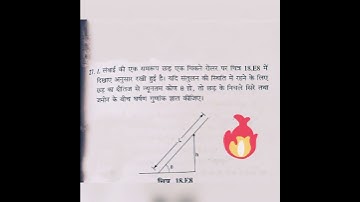 27. L लंबाई की एक समरूप छड़ एक चिकने रोलर पर चित्र 18.E8 में
दिखाए अनुसार रखी हुई है। यदि संतुलन की स्थिति में रहने के लिए
छड़ का क्षैतिज से न्यूनतम कोण θ हो, तो छड़ के निचले सिरे तथा
जमीन के बीच घर्षण गुणांक ज्ञात कीजिए।
L
θ
h
चित्र 18.E8